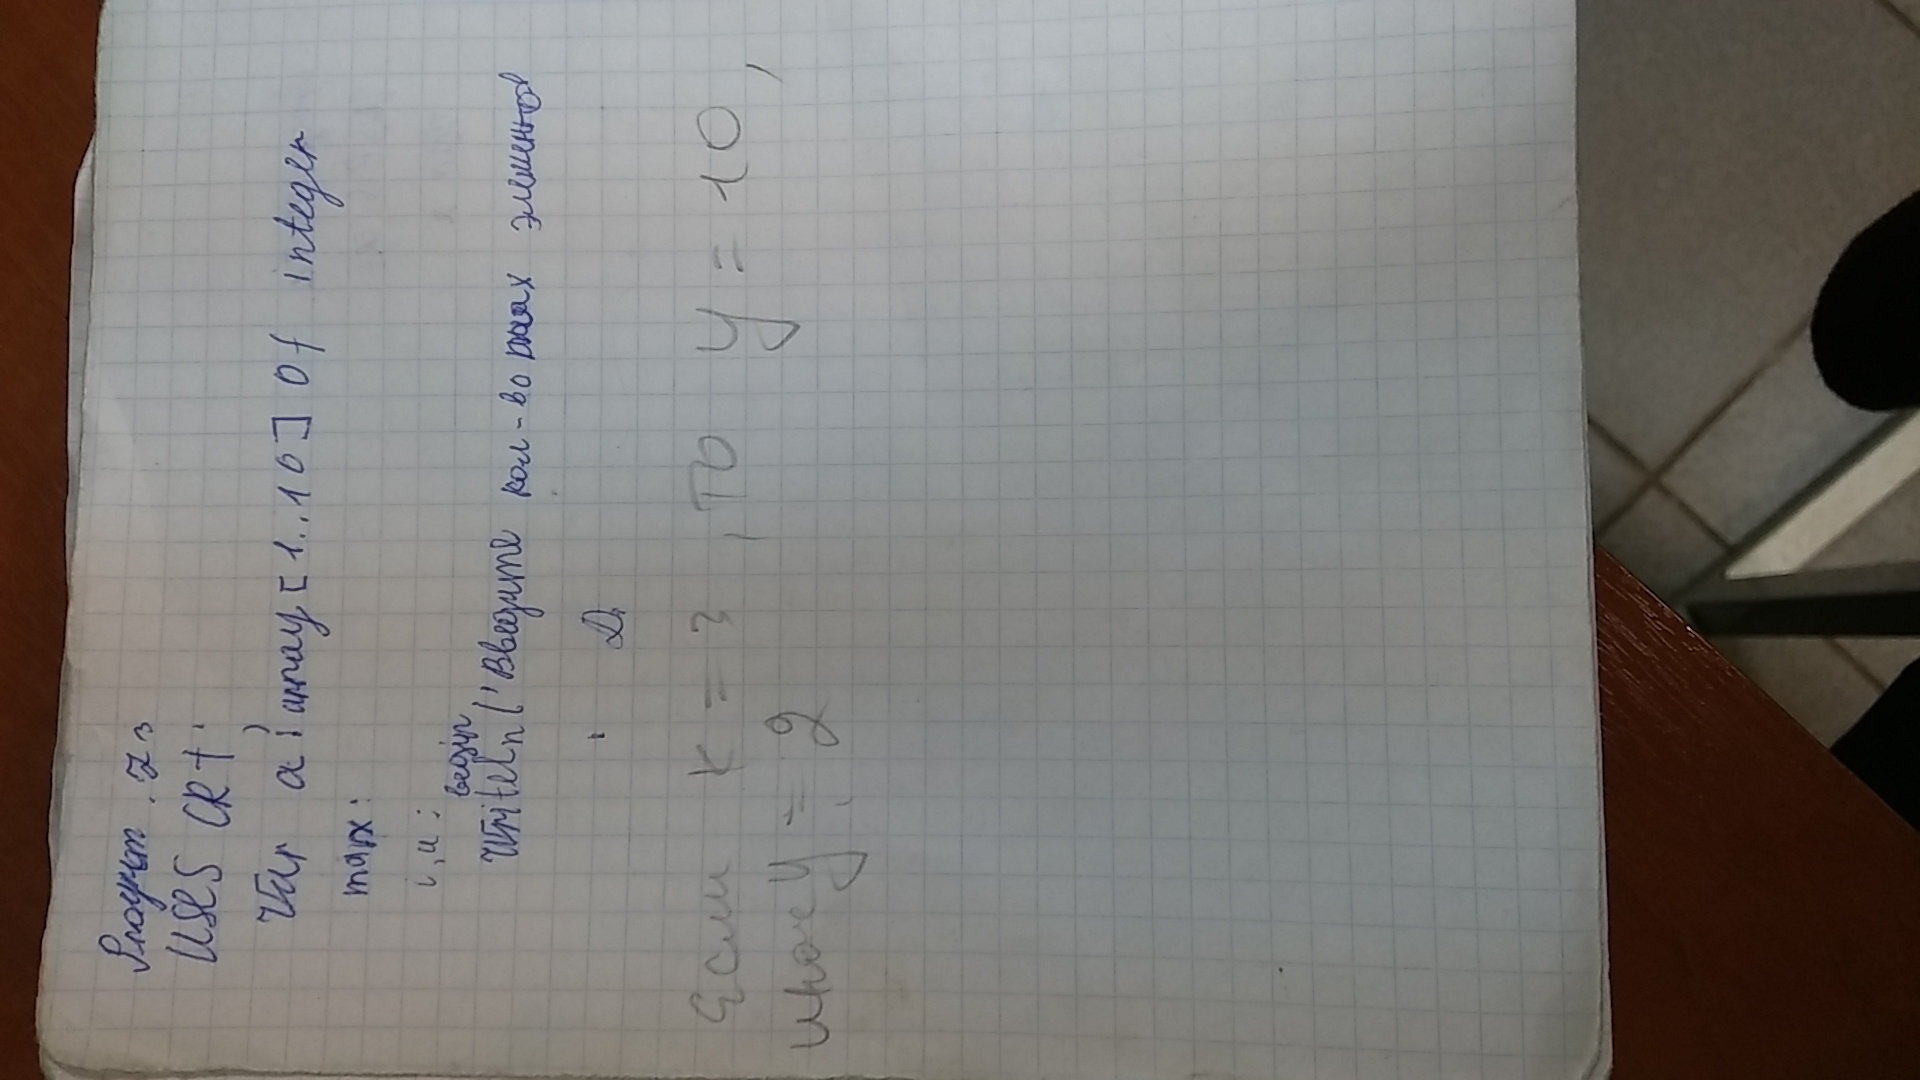 Program. Z3
USES CRT;
Var a: array [1..10] of integer
max:
i, u:
begin
Writeln ('Введите кол-во элементов
Если k = 3, то y = 10,
иначе y = 2